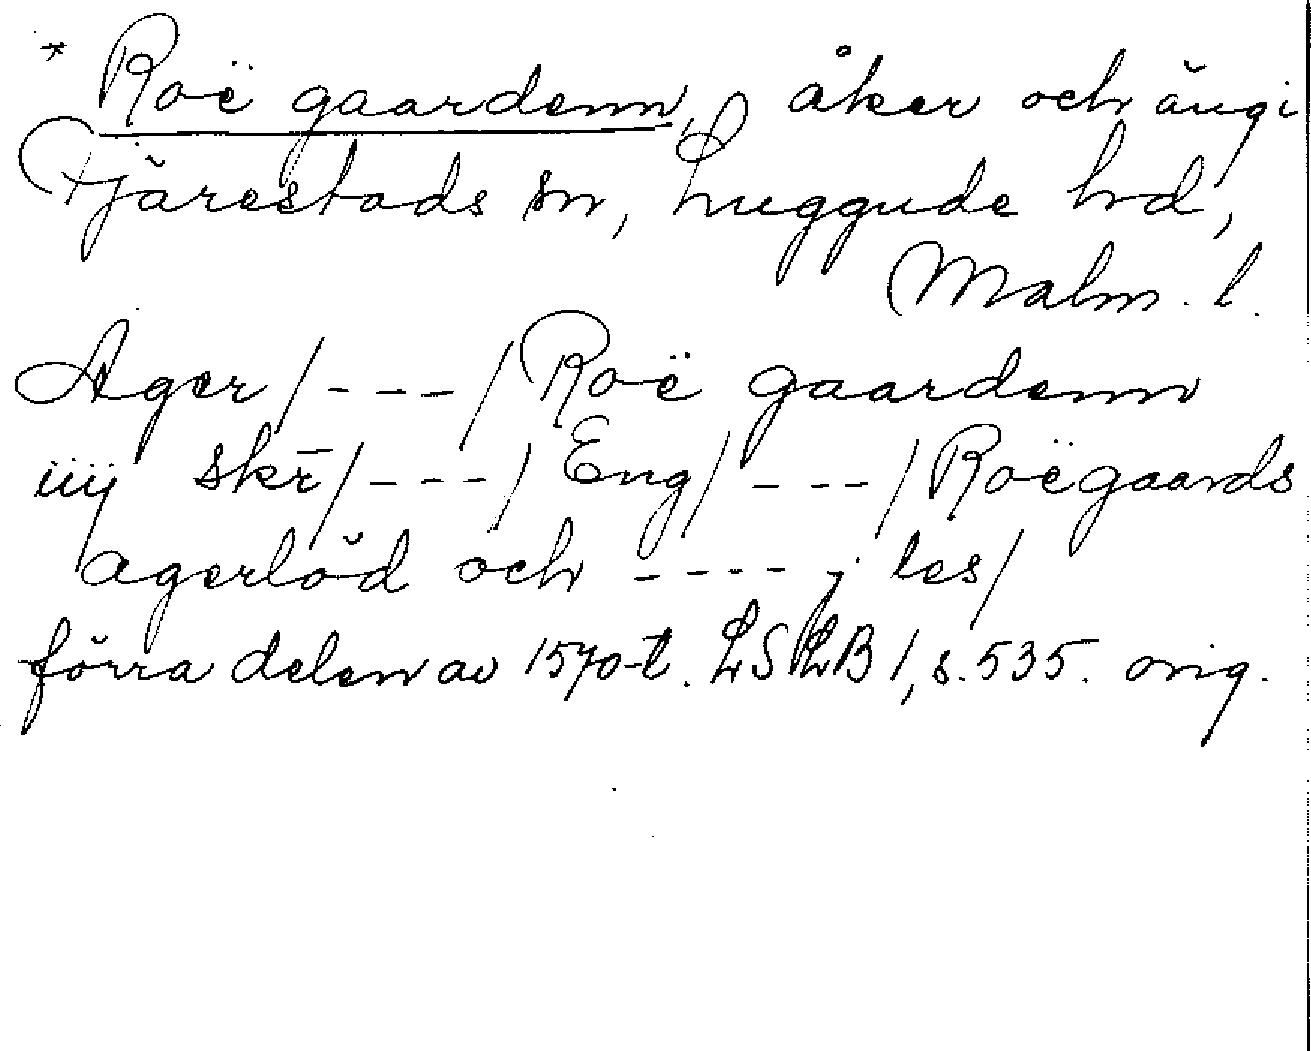 * Roë gaardenn, åker och äng i
Fjärestads sn, Luggude hd,
Malm. l.
Ager /---/ Roë gaardenn
iiij skr̄ /---/ Eng /---/ Roëgaards
agerlöd och ---- j les/
förra delen av 1570-t. LSLB 1, s. 535. orig.